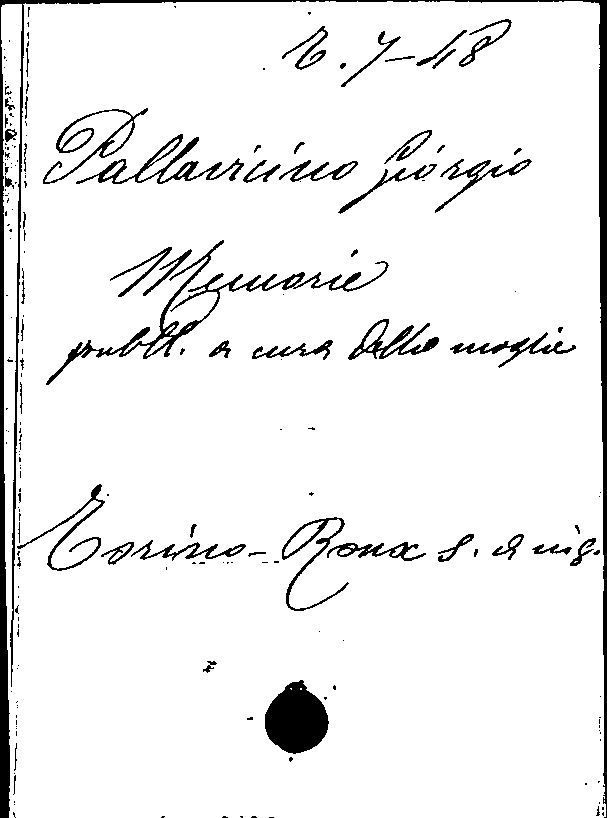 E. 7-48
Pallavicino Giorgio
Memorie
pubbl. a cura della moglie
Torino - Roux s. a